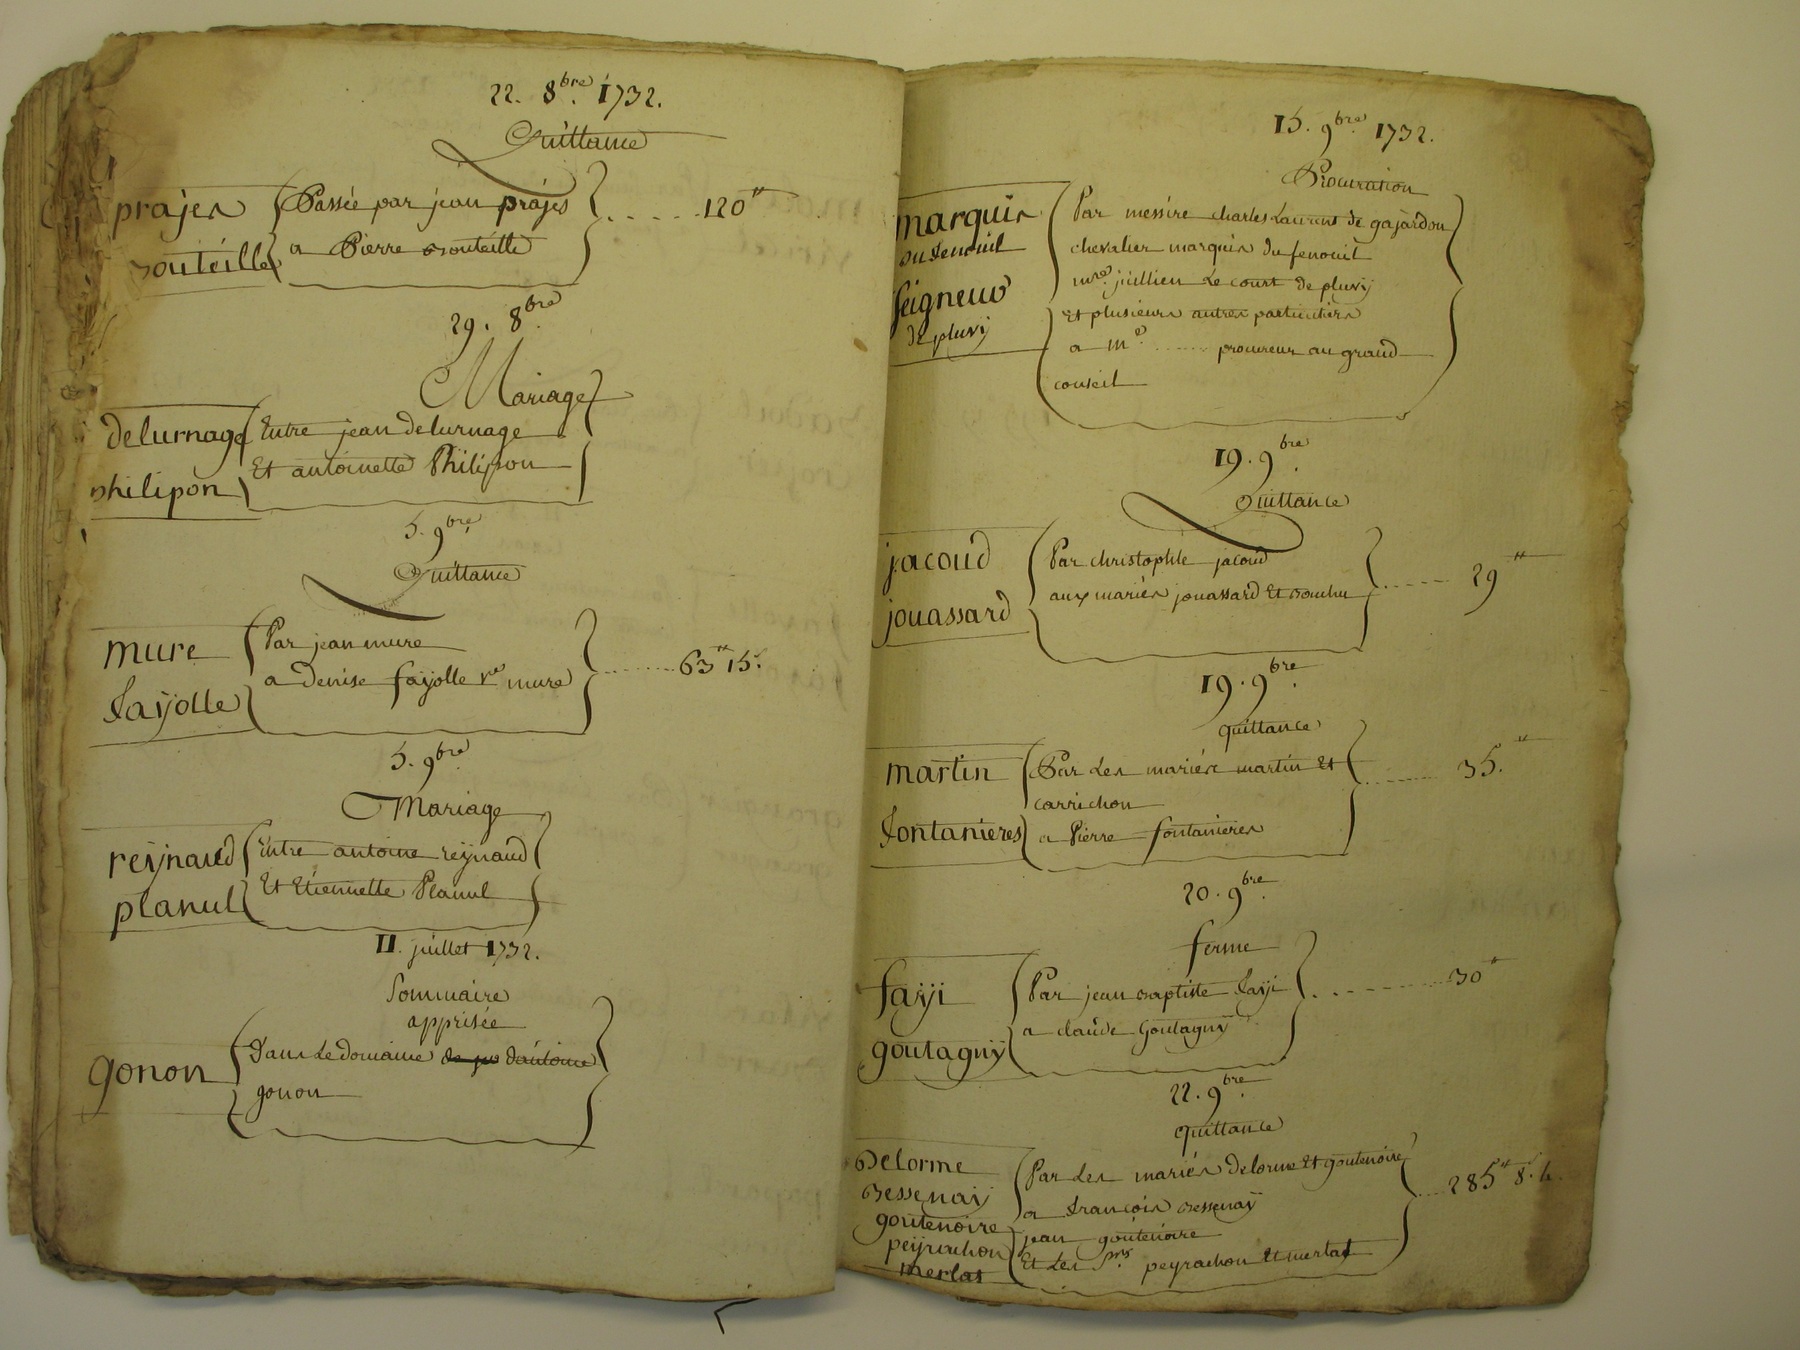 22. 8bre. 1732.
Quittance
prajes
bouteille
Passée par jean prajes
a Pierre bouteille
120tt
29. 8bre.
Mariage
delurnage
philipon
Entre jean delurnage
Et antoinette Philipon
5. 9bre.
Quittance
mure
fayolle
Par jean mure
a denise fayolle ve mure
63tt 15s.
5. 9bre.
Mariage
reÿnaud
planul
Entre antoine reÿnaud
Et Etiennette Planul
11. juillet 1732.
Sommaire
apprisée
gonon
Dans Le domaine dantoine
gonon
15. 9bre. 1732.
Procuration
marquis
du fenouil
Seigneur
de pluvÿ
Par messire charles Laurent de gajardon
chevalier marquis du fenouil
mre. jullien Le court de pluvÿ
Et plusieurs autres particuliers
a me. ........ procureur au grand
conseil
19. 9bre.
Quittance
jacoud
jouassard
Par christophle jacoud
aux mariés jouassard Et
29tt
19. 9bre.
quittance
martin
fontanieres
Par Les mariés martin Et
carrichon
a Pierre fontanieres
35.tt
20. 9bre.
ferme
faÿi
goutagnÿ
Par jean baptiste faÿi
a claude goutagnÿ
30tt
22. 9bre.
quittance
Delorme
bessenaÿ
goutenoire
peÿrachon
merlat
Par Les mariés delorme Et goutenoire
a francois bessenaÿ
jean goutenoire
Et Les Srs. peyrachon Et merlat
285tt 8s.